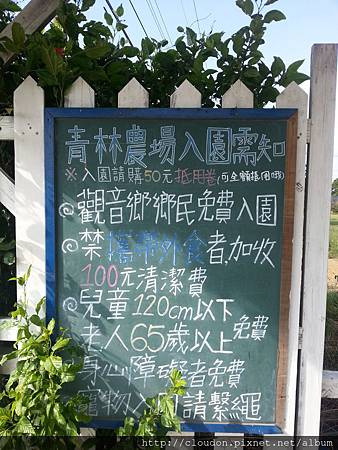 青林農場入園需知
※入園請購50元抵用卷(可全額抵用哦)
觀音鄉鄉民免費入園
禁攜帶外食者,加收
100元清潔費
兒童120cm以下
老人65歲以上 免費
身心障礙者免費
寵物入園請繫繩
http://cloudon.pixnet.net/blog